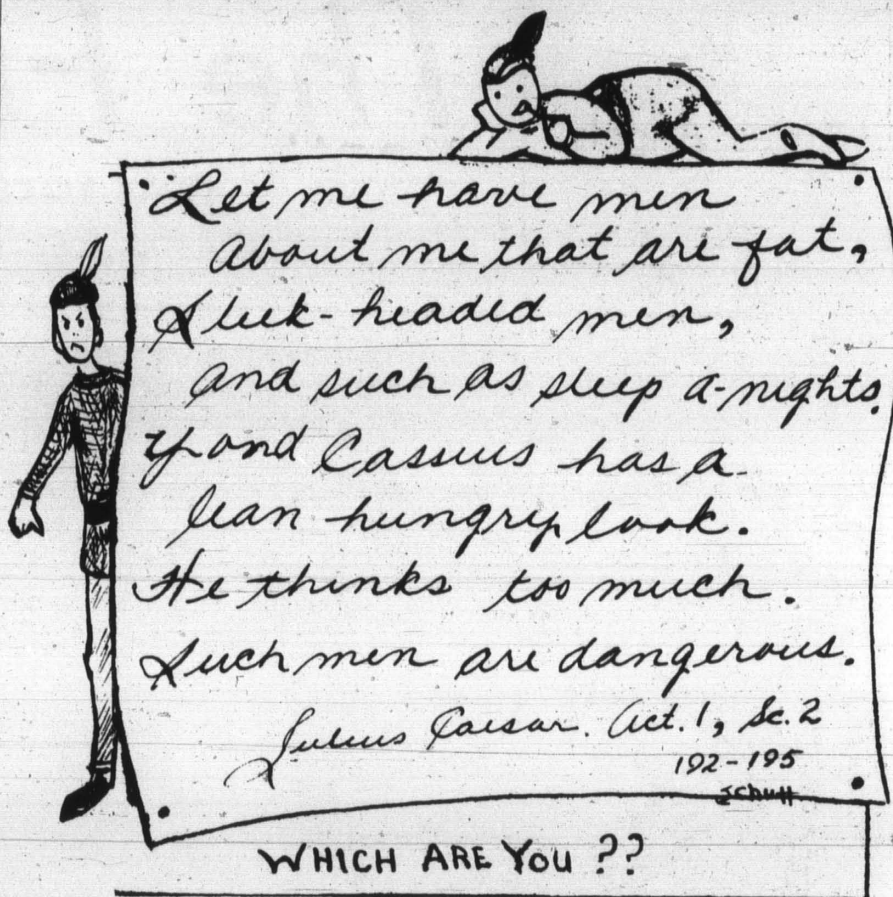 Let me have men
About me that are fat,
Sleek-headed men,
And such as sleep a-nights.
Yond Cassius has a
lean hungry look.
He thinks too much.
Such men are dangerous.
Julius Caesar. Act. 1, Sc. 2
192-195
WHICH ARE YOU ??